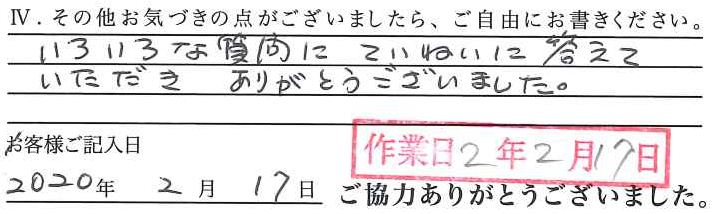 Ⅳ.その他お気づきの点がございましたら、ご自由にお書きください。
いろいろな質問に ていねいに 答えて
いただき ありがとうございました。
お客様ご記入日
作業日2年2月17日
2020年 2月 17日 ご協力ありがとうございました。